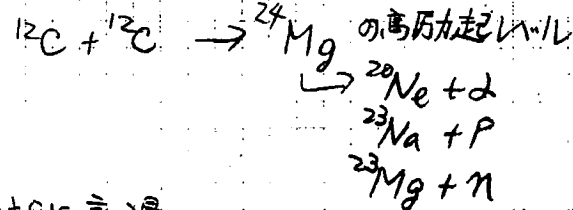 ¹²C + ¹²C → ²⁴Mg の高励起レベル
↳ ²⁰Ne + α
²³Na + P
²³Mg + n